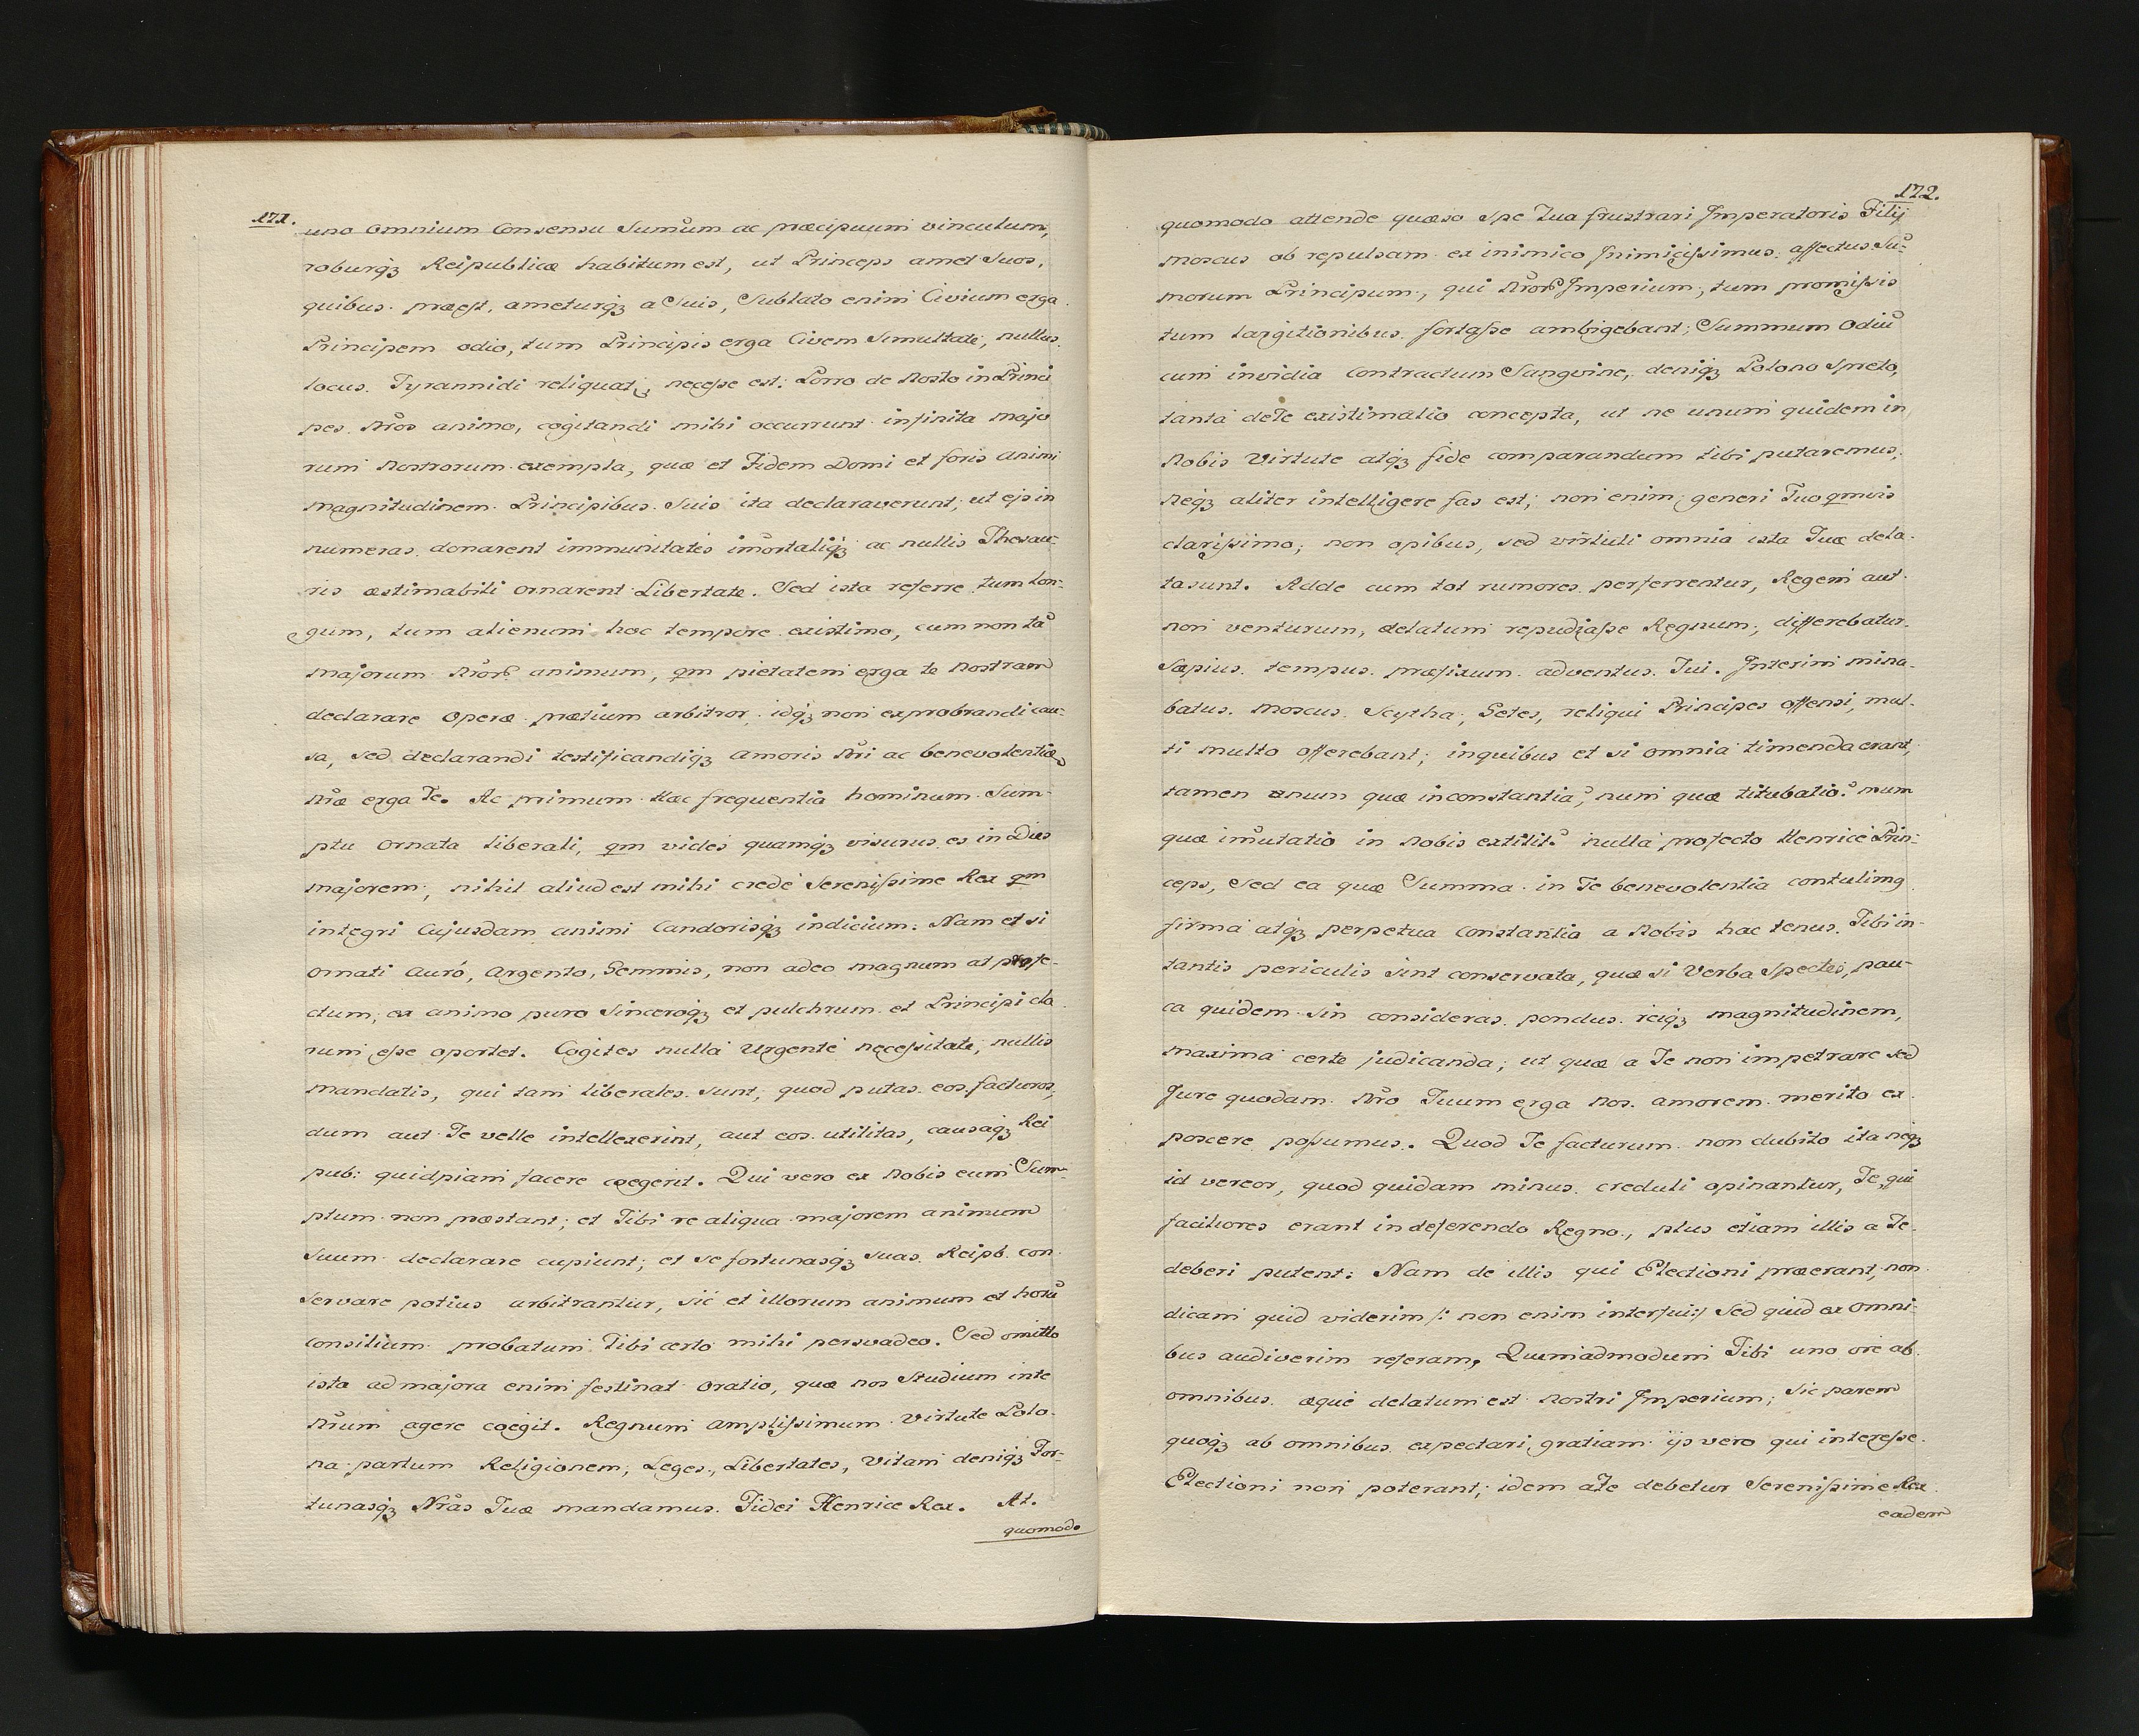 171.
uno omnium Consensu Sum̃um ac præcipuum vinculum,
roburq₃ Reipublicæ habitum est, ut Princeps amet Suos,
quibus præest, ameturq₃ a Suis, Sublato enim Civium erga
Principem odio, tum Principis erga Civem Simultate, nullus
locus Tyrannidi reliquatj necesse est: Porro de Nosto in Princi
pes Nr̃os animo, cogitandi mihi occurrunt infinita majo
rum Nostrorum exempla, quæ et Fidem Domi et foris animi
magnitudinem Principibus Suis ita declaraverunt, ut ejs in
numeras donarent immunitates im̃ortaliq₃ ac nullis Thesau-
ris æstimabili ornarent Libertate. Sed ista referre tum lon-
gum, tum alienum hoc tempore existimo, cum non tã
majorum Nr̃or animum, qm pietatem erga te Nostram
declarare operæ prætium arbitror, idq₃ non exprobrandi cau-
sa, sed declarandi testificandiq₃ amoris Nr̃i ac benevolentiæ
Nr̃æ erga Te. Ac primum Hac frequentia hominum Sum-
ptu ornata liberali, qm vides quamq₃ visurus es in Dies
majorem, nihil aliud est mihi crede Serenissime Rex qm
integri Cujusdam animi Candorisq₃ indicium: Nam et si
ornati Auro, Argento, Gemmis, non adeo magnum at profe-
ctum, ex animo puro Sinceroq₃ et pulchrum et Principi cla
rum esse oportet. Cogites nulla Urgente necessitate, nullis
mandatis, qui tam liberales sunt, quod putas eos facturos,
dum aut Te velle intellexerint, aut eos utilitas, causaq₃ Rei
pub: quidpiam facere coegerit. Qui vero ex Nobis eum Sum-
ptum non præstant, et Tibi re aliqua majorem animum
Suum declarare cupiunt, et se fortunasq₃ suas Reipb. con
servare potius arbitrantur, sic et illorum animum et horũ
consilium probatum Tibi certo mihi persvadeo. Sed omitto
ista ad majora enim festinat oratio, quæ nos Studium inte
Nr̃um agere coegit. Regnum amplissimum virtute Polo-
na partum Religionem, Leges, Libertates, Vitam deniq₃ For-
tunasq₃ Nr̃as Tuæ mandamus Fidei Henrice Rex. At.
quomodo
172.
quomodo attende quæso Spe Tua frustrari Imperatoris Filij
Moscus ob repulsam ex inimico Inimicissimus affectus Su-
morum Principum, qui Nr̃or Imperium, tum promissis
tum largitionibus fortasse ambigebant, Summum Odiũ
cum invidia Contractum Sangvine, deniq₃ Polono Spreto,
tanta de Te existimatio concepta, ut ne unum quidem in
Nobis Virtute atq₃ fide comparandum tibi putaremus,
Neq₃ aliter intelligere fas est, non enim generi Tuo qmvis
clarissimo, non opibus, sed virtuti omnia ista Tuæ dela-
ta sunt. Adde cum tot rumores perferrentur, Regem aut
non venturum, delatum repudiasse Regnum, differebatur
Sæpius tempus præfixum adventus Tui. Interim mina-
batus Moscus Scytha, Getes, reliqui Principes offensi, mul-
ti multo offerebant, in quibus et si omnia timenda erant,
tamen num quæ inconstantia? num quæ titubatio? num
quæ im̃utatio in Nobis extitit? nulla profecto Henrice Prin-
ceps, Sed ea quæ Summa in Te benevolentia contulimg
firma atq₃ perpetua Constantia a Nobis hac tenus Tibi in
tantis periculis sint conservata, quæ si Verba Spectes, pau-
ca quidem sin consideras pondus reiq₃ magnitudinem,
maxima certe judicanda, ut quæ a Te non impetrare sed
Jure quodam Nr̃o Tuum erga Nos amorem merito ex
poscere possumus. Quod Te facturum non dubito ita neq₃
id vereor, quod quidam minus creduli opinantur, Te, qui
faciliores erant in deferendo Regno, plus etiam illis a Te
deberi putent: Nam de illis qui Electioni præerant, non
dicam quid viderim /: non enim interfui :/ Sed quid ex omni-
bus audiverim referam, Quemadmodum Tibi uno ore ab
omnibus æque delatum est Nostri Imperium, Sic parem
quoq₃ ab omnibus expectari gratiam ijs vero qui interesse
Electioni non poterant, idem a Te debetur Serenissime Rex
eadem